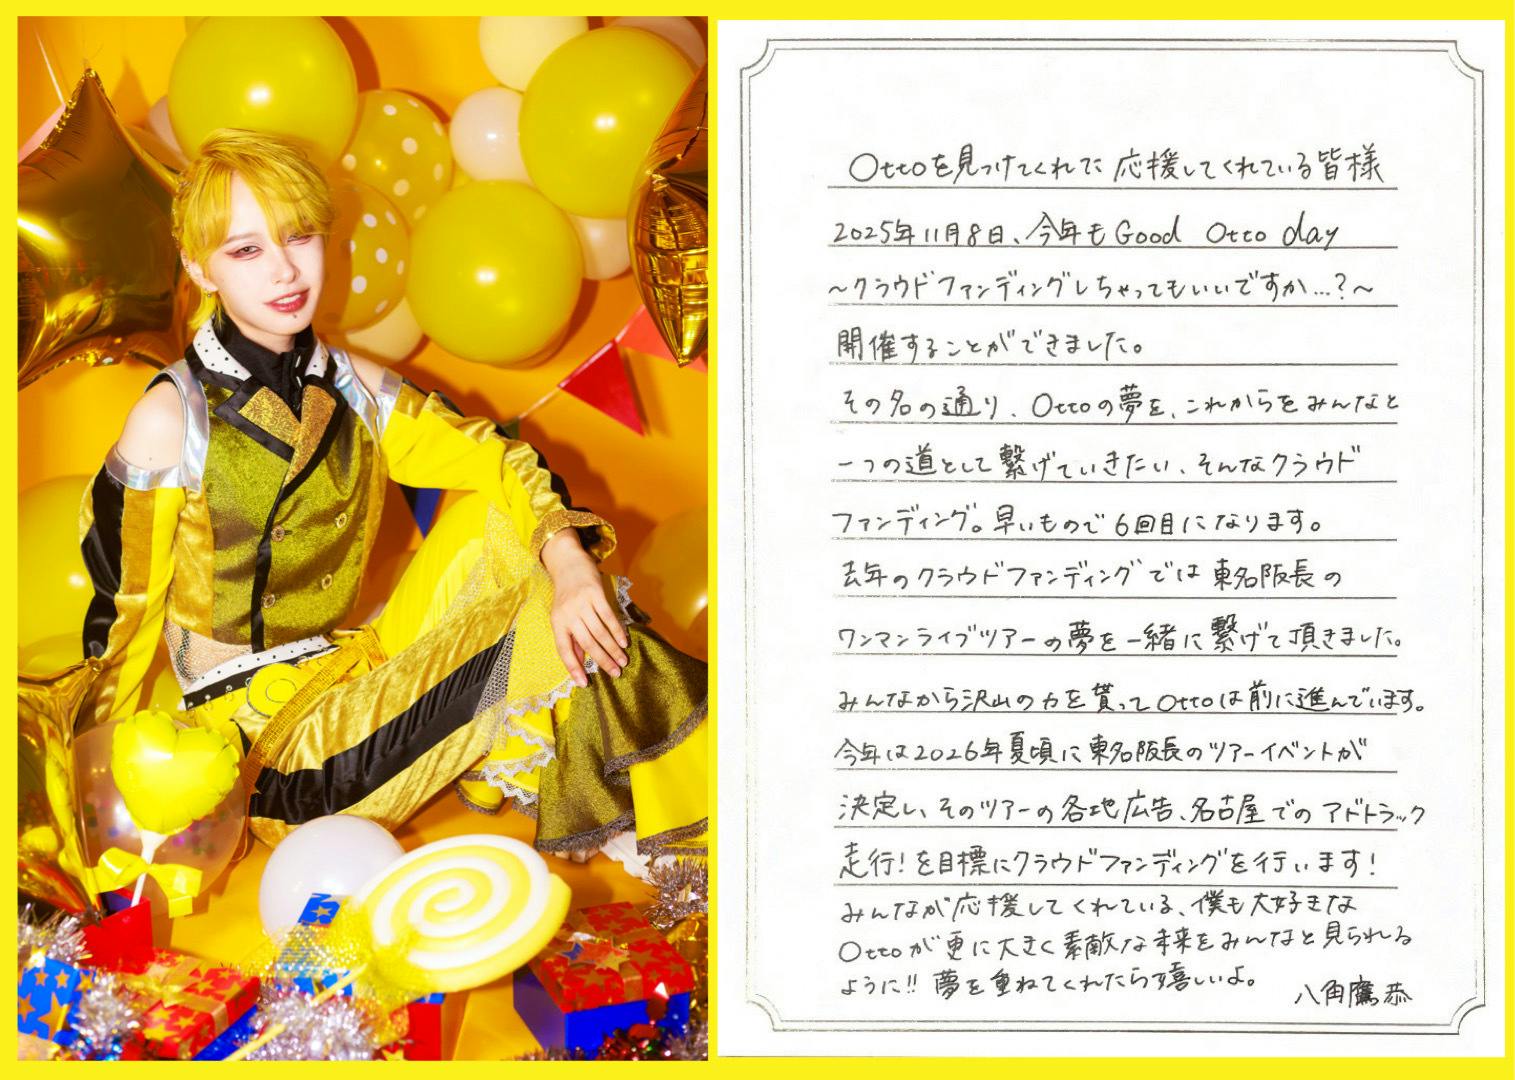 Ottoを見つけてくれて応援してくれている皆様
2025年11月8日、今年もGood Otto day
~クラウドファンディングしちゃってもいいですか...?~
開催することができました。
その名の通り、Ottoの夢を、これからをみんなと
一つの道として繋げていきたい、そんなクラウド
ファンディング。早いもので6回目になります。
去年のクラウドファンディングでは東名阪長の
ワンマンライブツアーの夢を一緒に繋げて頂きました。
みんなから沢山の力を貰ってOttoは前に進んでいます。
今年は2026年夏頃に東名阪長のツアーイベントが
決定し、そのツアーの各地広告、名古屋でのアドトラック
走行!を目標にクラウドファンディングを行います!
みんなが応援してくれている、僕も大好きな
Ottoが更に大きく素敵な未来をみんなと見られる
ように!!夢を重ねてくれたら嬉しいよ。
八角鷹恭